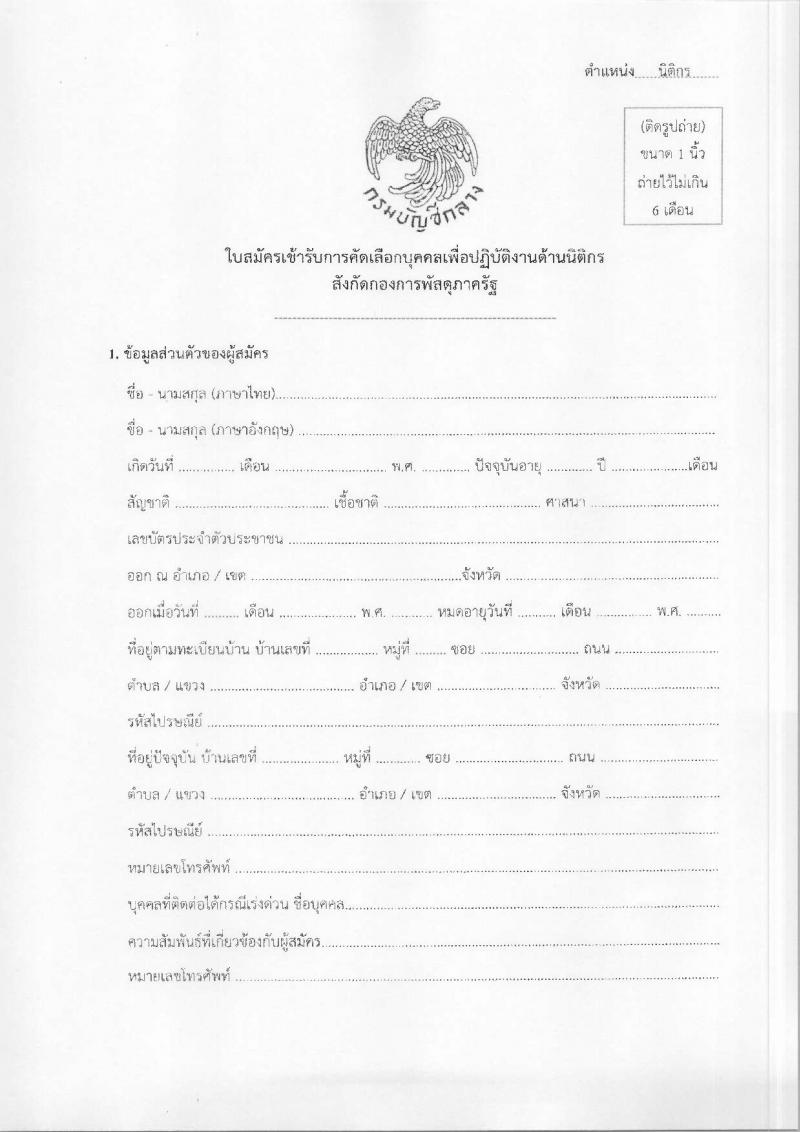 ตำแหน่ง......นิติกร.......
(ติดรูปถ่าย)
ขนาด 1 นิ้ว
ถ่ายไว้ไม่เกิน
6 เดือน
กรมบัญชีกลาง
ใบสมัครเข้ารับการคัดเลือกบุคคลเพื่อปฏิบัติงานด้านนิติกร
สังกัดกองการพัสดุภาครัฐ
1. ข้อมูลส่วนตัวของผู้สมัคร
ชื่อ - นามสกุล (ภาษาไทย)....................
ชื่อ - นามสกุล (ภาษาอังกฤษ) ....................
เกิดวันที่ ............... เดือน ............................ พ.ศ. ............. ปัจจุบันอายุ ............ ปี ....................เดือน
สัญชาติ .................... เชื้อชาติ .................... ศาสนา ....................
เลขบัตรประจำตัวประชาชน ....................
ออก ณ อำเภอ / เขต ....................จังหวัด ....................
ออกเมื่อวันที่ .......... เดือน .................... พ.ศ. ........... หมดอายุวันที่ .......... เดือน .............. พ.ศ. .........
ที่อยู่ตามทะเบียนบ้าน บ้านเลขที่ ................. หมู่ที่ ........ ซอย .................... ถนน ....................
ตำบล / แขวง .................... อำเภอ / เขต .................... จังหวัด ....................
รหัสไปรษณีย์ ....................
ที่อยู่ปัจจุบัน บ้านเลขที่ .................... หมู่ที่ ............ ซอย .................... ถนน ....................
ตำบล / แขวง .................... อำเภอ / เขต .................... จังหวัด ....................
รหัสไปรษณีย์ ....................
หมายเลขโทรศัพท์ ....................
บุคคลที่ติดต่อได้กรณีเร่งด่วน ชื่อบุคคล....................
ความสัมพันธ์ที่เกี่ยวข้องกับผู้สมัคร....................
หมายเลขโทรศัพท์ ....................